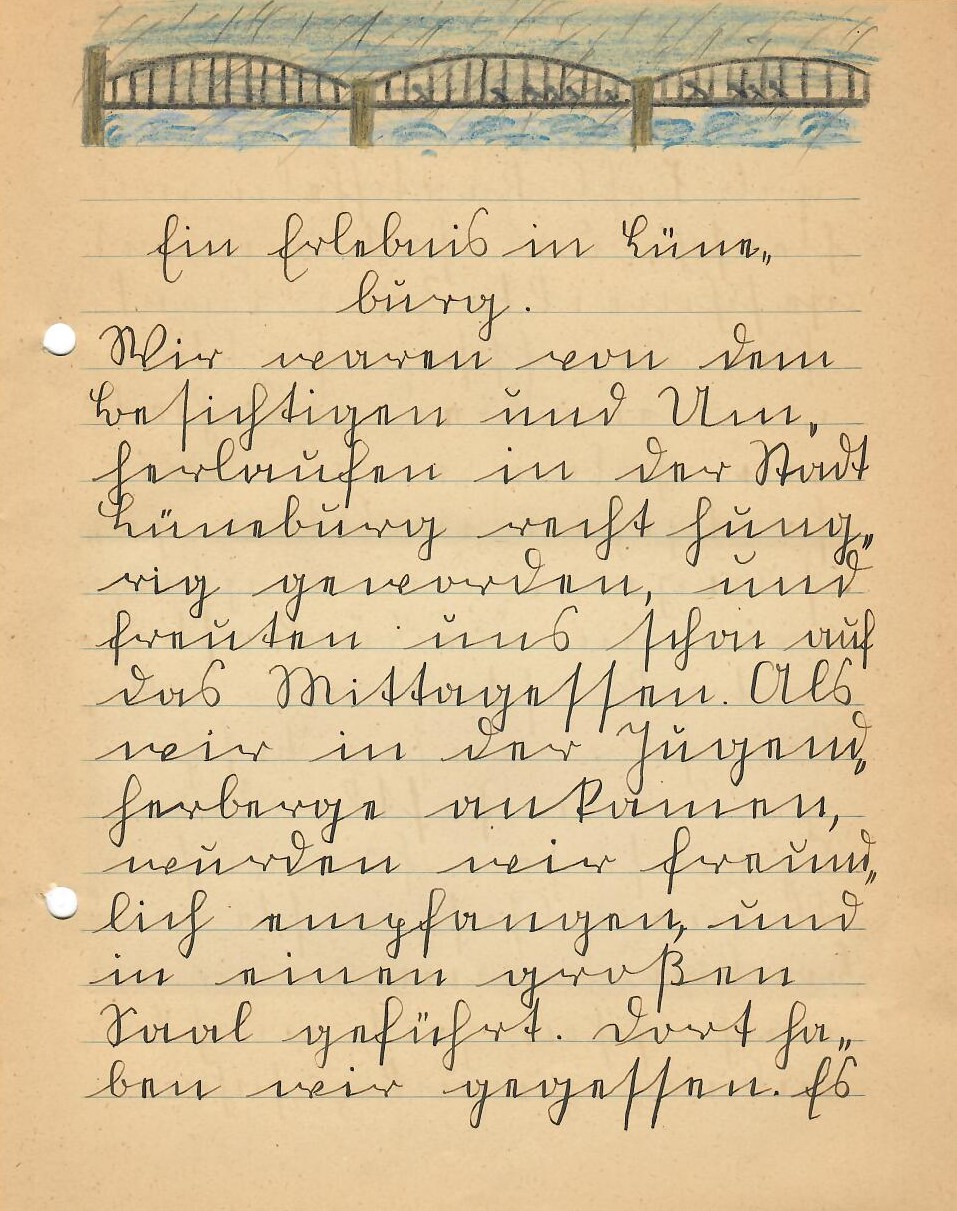 Ein Erlebnis in Lüne„
burg.
Wir waren von dem
Besichtigen und Um„
herlaufen in der Stadt
Lüneburg recht hung„
rig geworden, und
freuten uns schon auf
das Mittagessen. Als
wir in der Jugend„
herberge ankamen,
wurden wir freund„
lich empfangen, und
in einen großen
Saal geführt. Dort ha„
ben wir gegessen. Es